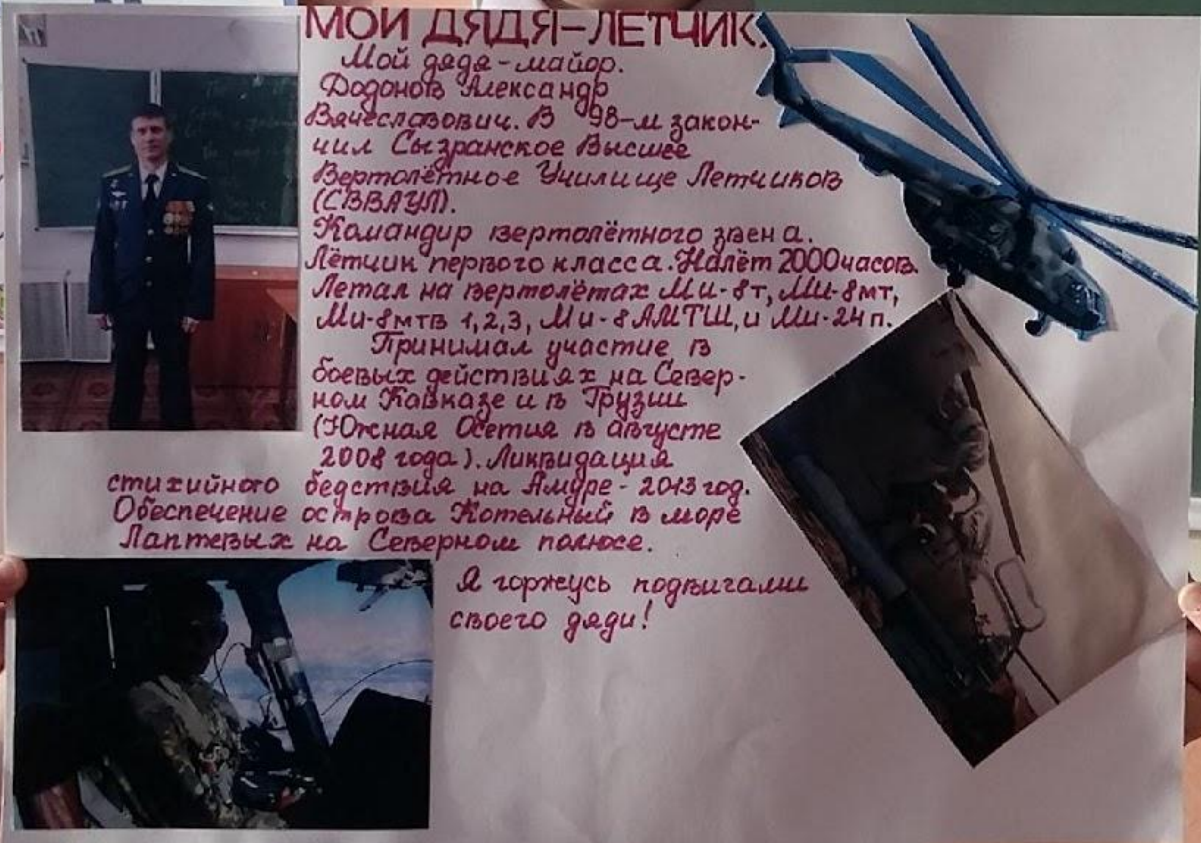 МОЙ ДЯДЯ-ЛЕТЧИК.
Мой дядя - майор.
Додонов Александр
Вячеславович. В 98-м закон-
чил Сызранское Высшее
Вертолётное Училище Летчиков
(СВВАУЛ).
Командир вертолётного звена.
Лётчик первого класса. Налёт 2000 часов.
Летал на вертолётах Ми-8т, Ми-8мт,
Ми-8мтв 1,2,3, Ми-8АМТШ, и Ми-24п.
Принимал участие в
боевых действиях на Север-
ном Кавказе и в Грузии
(Южная Осетия в августе
2008 года). Ликвидация
стихийного бедствия на Амуре - 2013 год.
Обеспечение острова Котельный в море
Лаптевых на Северном полюсе.
Я горжусь подвигами
своего дяди!